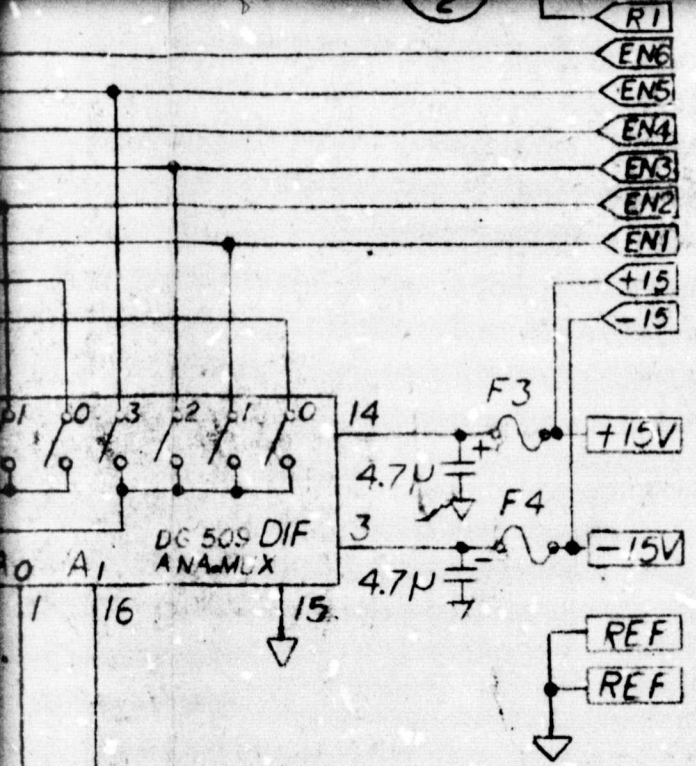 2
R1
EN6
EN5
EN4
EN3
EN2
EN1
+15
-15
F3
1 0 3 2 1 0 14
+ +15V
4.7μ
F4
DG 509 DIF 3
ANA MUX
- -15V
A0 A1
4.7μ
1 16 15
REF
REF